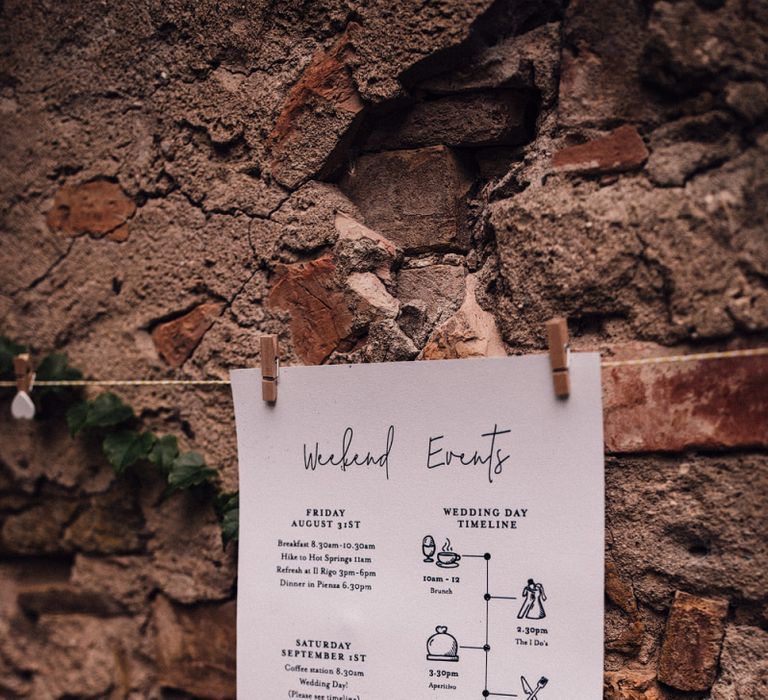 Weekend Events
FRIDAY
AUGUST 31ST
Breakfast 8.30am-10.30am
Hike to Hot Springs 11am
Refresh at Il Rigo 3pm-6pm
Dinner in Pienza 6.30pm
SATURDAY
SEPTEMBER 1ST
Coffee station 8.30am
Wedding Day!
(Please see timeline)
WEDDING DAY
TIMELINE
10am - 12
Brunch
2.30pm
The I Do's
3.30pm
Aperitivo